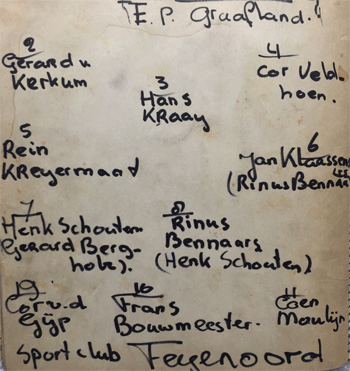 E. P. Graafland.
2
Gerard v
Kerkum
4
Cor Veld-
hoen.
3
Hans
KRaay
5
Rein
KReyermaat
6
Jan Klaassens
(Rinus Bennaars
7
Henk Schouten
Gerard Berg-
holz).
8
Rinus
Bennaars
(Henk Schouten)
Cor v.d
Gijp
10
Frans
Bouwmeester.
11
Coen
Moulijn
Sportclub Feyenoord